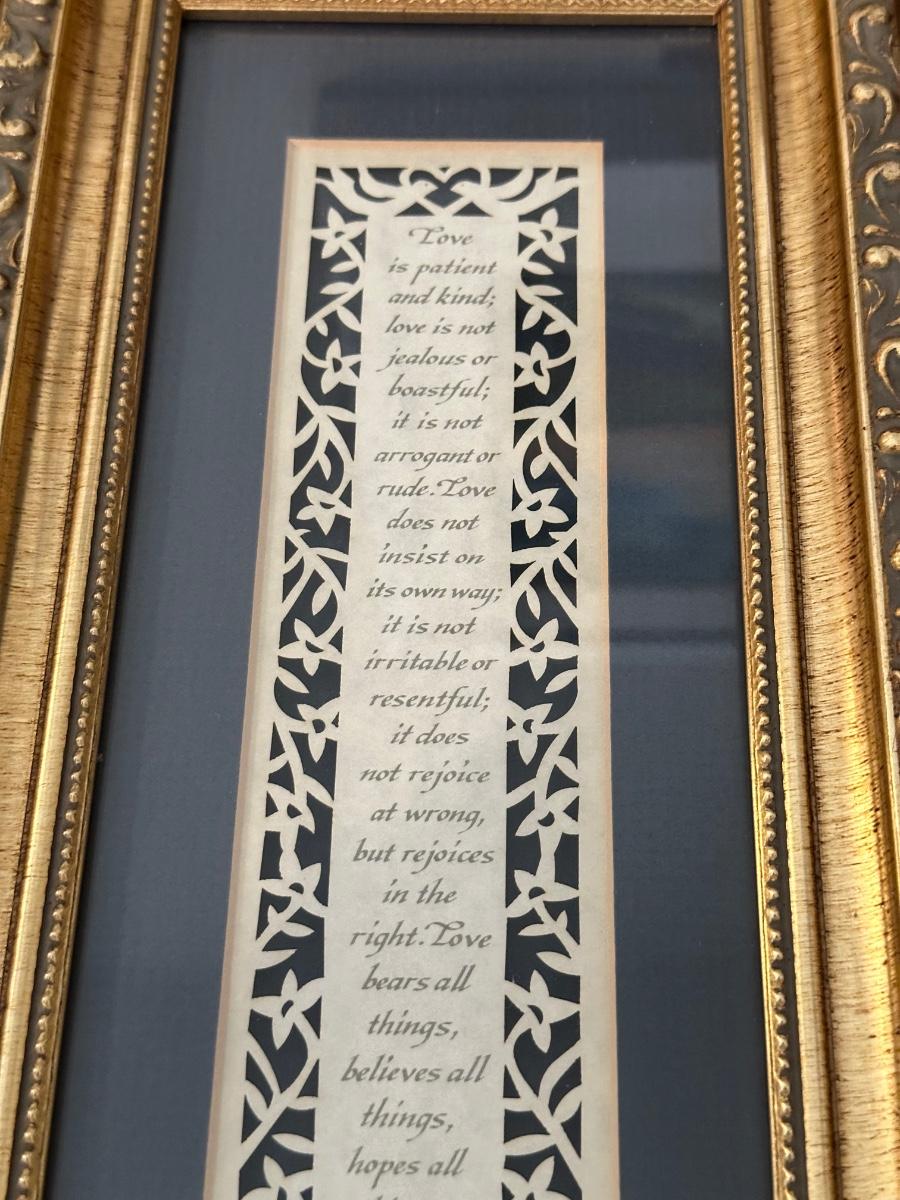 Love
is patient
and kind;
love is not
jealous or
boastful;
it is not
arrogant or
rude. Love
does not
insist on
its own way;
it is not
irritable or
resentful;
it does
not rejoice
at wrong,
but rejoices
in the
right. Love
bears all
things,
believes all
things,
hopes all